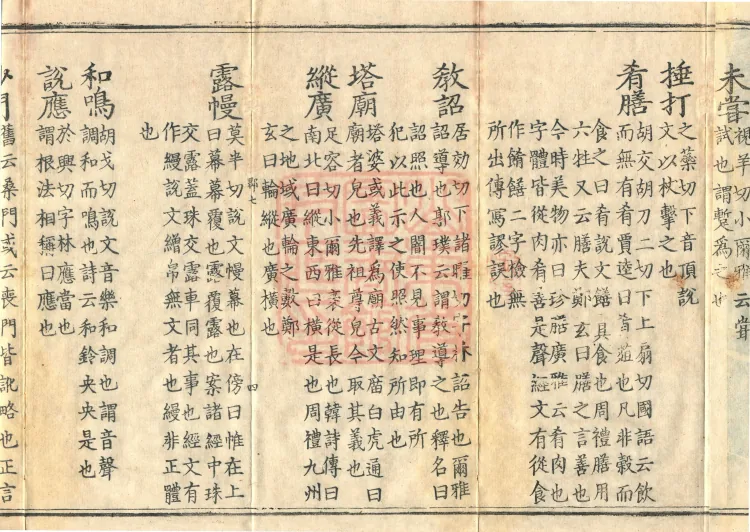 未嘗視羊切小爾雅云嘗
試也謂蹔為之也
捶打之藥切下音頂說
文以杖擊之也
肴膳胡交胡刀二切下上扇切國語云飲
而無有肴賈逵曰肴葅也凡非穀而
食之曰肴說文饍具食也周禮膳用
六牲又云膳夫鄭玄曰膳之言善也
今時美物亦曰珍膳廣雅云肴肉也
字體皆從肉肴善是聲經文有從食
作餚饍二字檢無
所出傳寫謬誤也
教詔居効切下諸曜切字林詔告也爾雅
詔導也郭璞云謂教導之也釋名曰
詔照也人闇不見事理即有所
犯以此示之使照然知所由也
塔廟塔婆或義譯為廟古文庿白虎通曰
廟者皃也先祖尊皃今取其義也
縱廣足容切小爾雅袤從長也韓詩傳曰
南北曰縱東西曰橫是也周禮九州
之地域廣輪之數鄭
玄曰輪縱也廣橫也
七 四
露幔莫半切說文幔幕也在傍曰帷在上
曰幕幕覆也露覆露也案諸經中珠
交露蓋珠交露車同其事也經文有
作縵說文繒帛無文者也縵非正體
也
和鳴胡戈切說文音樂和調也謂音聲
調和而鳴也詩云和鈴央央是也
說應於興切字林應當也
謂根法相稱曰應也
舊云桑門或云喪門皆訛略也正言